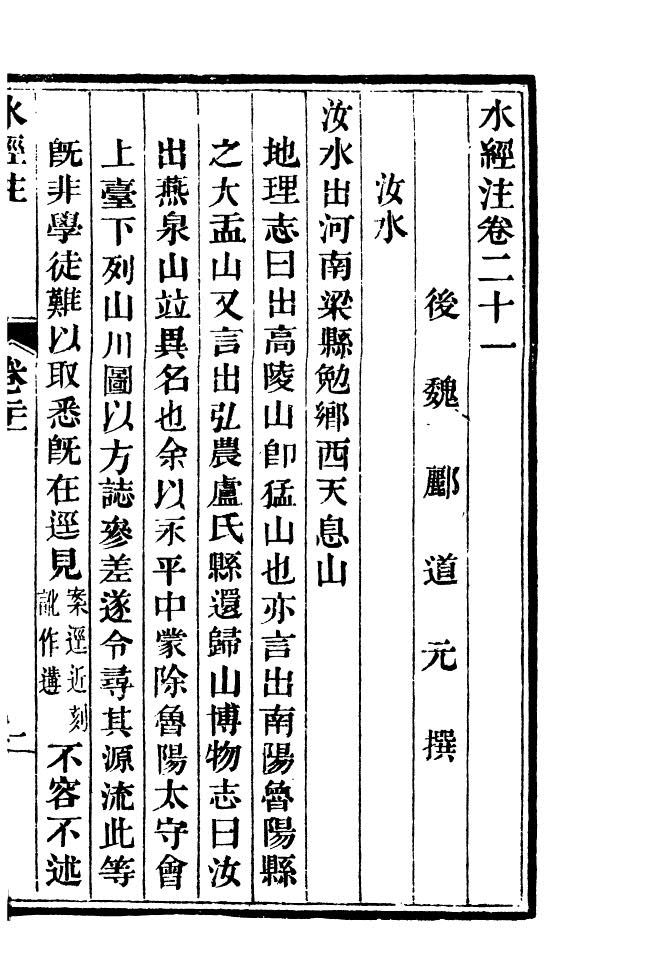 水經注卷二十一
後魏酈道元撰
汝水
汝水出河南梁縣勉鄉西天息山
地理志曰出高陵山卽猛山也亦言出南陽魯陽縣
之大盂山又言出弘農盧氏縣還歸山博物志曰汝
出燕泉山竝異名也余以永平中蒙除魯陽太守會
上臺下列山川圖以方誌參差遂令尋其源流此等
旣非學徒難以取悉旣在逕見案逕近刻訛作遘不容不述
水經注 卷二十一 一